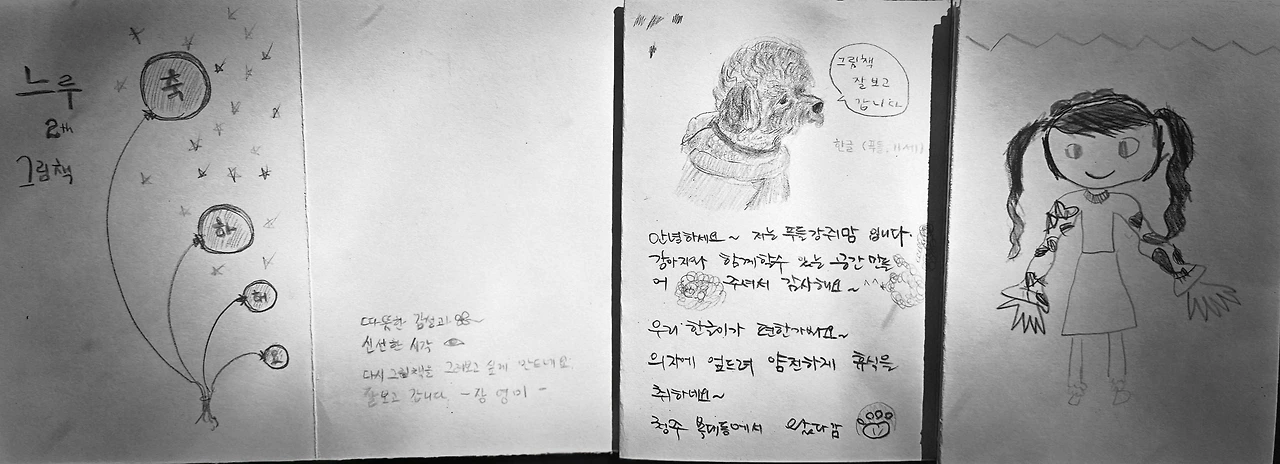 느루
2th
그림책
축
하
해
요
따뜻한 감성과
신선한 시각
다시 그림책을 그려보고 싶게 만드네요.
잘보고 갑니다 -장영미-
그림책
잘 보고
갑니다
한글 (푸들, 11세)
안녕하세요~ 저는 푸들강쥐맘 입니다.
강아지와 함께할수 있는 공간 만들
어 주셔서 감사해요~^^
우리 한글이가 편한가봐요~
의자에 엎드려 얌전하게 휴식을
취하네요~
청주 복대동에서 왔다감